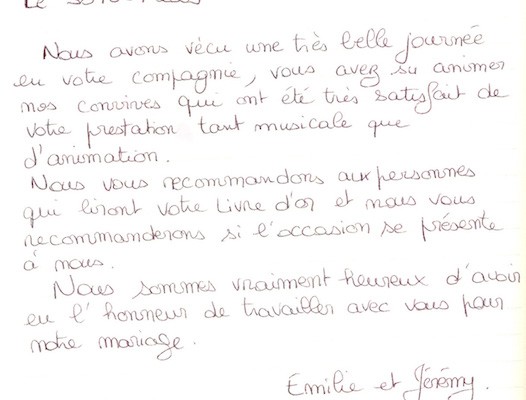 Le
Nous avons vécu une très belle journée
en votre compagnie, vous avez su animer
nos convives qui ont été très satisfait de
votre prestation tant musicale que
d'animation.
Nous vous recommandons aux personnes
qui liront votre Livre d'or et nous vous
recommanderons si l'occasion se présente
à nous.
Nous sommes vraiment heureux d'avoir
eu l'honneur de travailler avec vous pour
notre mariage.
Emilie et Jérémy.